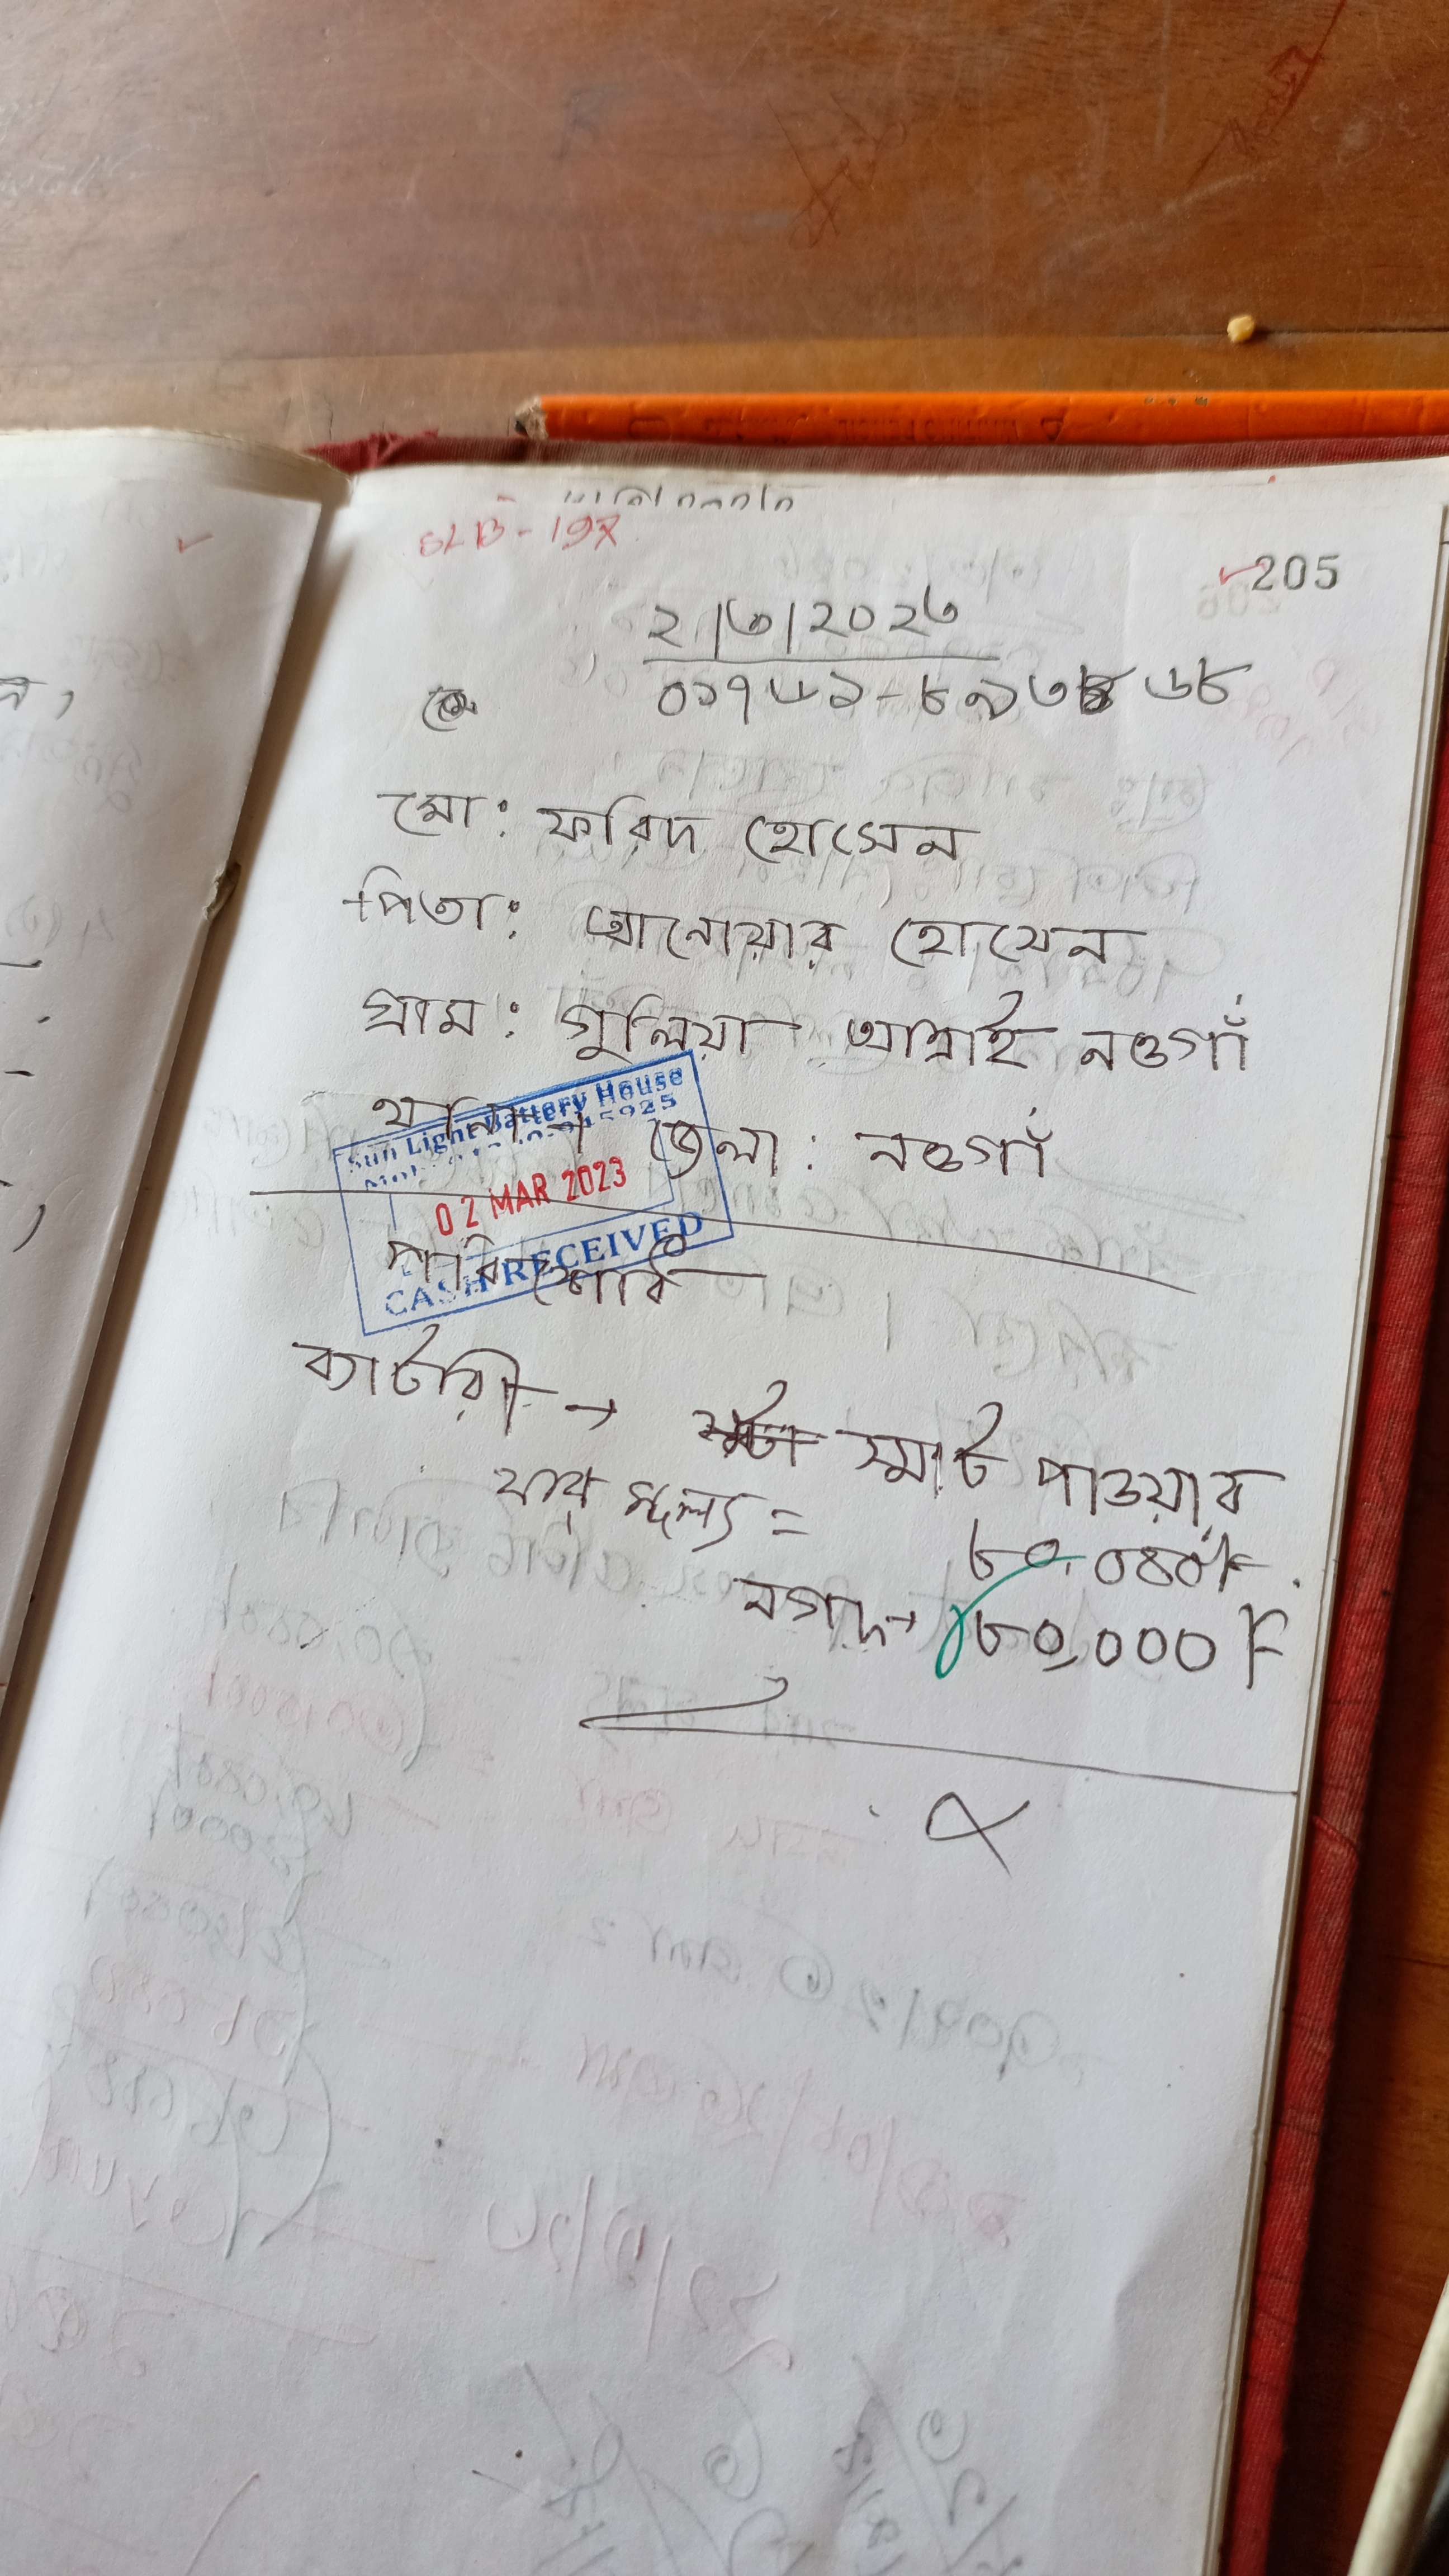 SLB - 197
205
২/৩/২০২৩
০১৭৫১-৮৯৩৪৬৮
মো: ফরিদ হোসেন
পিতা: আনোয়ার হোসেন
গ্রাম: গুলিয়া আত্রাই নওগাঁ
থানা: জেলা: নওগাঁ
Sun Light Battery House
02 MAR 2023
CASH RECEIVED
পরিশোধ
ব্যাটরী → স্মার্ট পাওয়ার
যার মূল্য =
৮০,০৪০/-
নগদ → ৮০,০০০/-